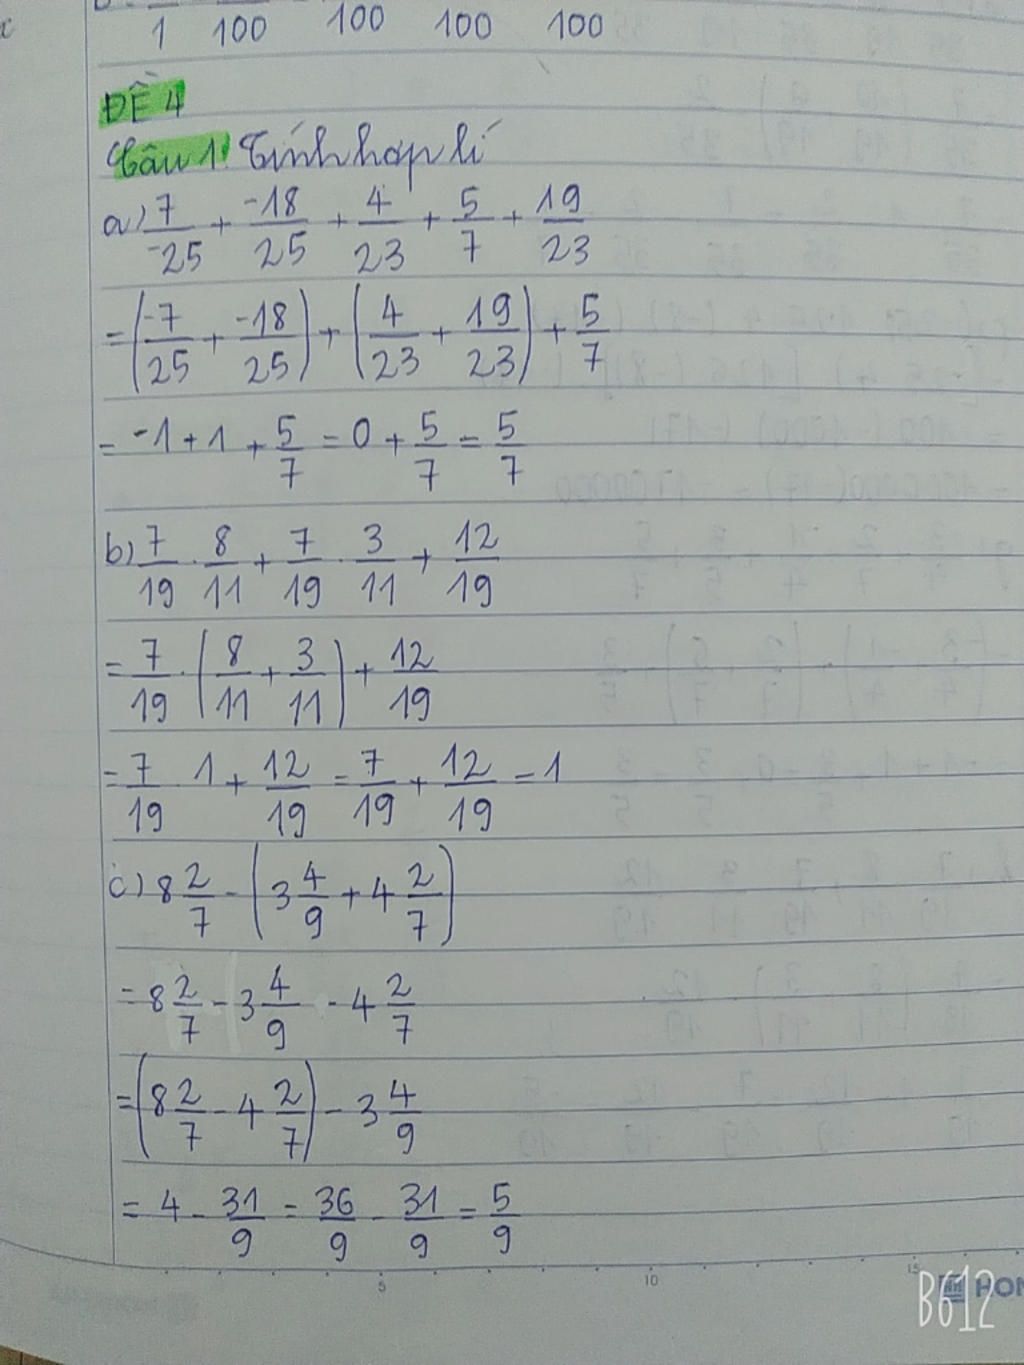 1 100 100 100 100
ĐỀ 4
Câu 1: Tính hợp lí
a) 7/-25 + -18/25 + 4/23 + 5/7 + 19/23
= (-7/25 + -18/25) + (4/23 + 19/23) + 5/7
= -1 + 1 + 5/7 = 0 + 5/7 = 5/7
b) 7/19 . 8/11 + 7/19 . 3/11 + 12/19
= 7/19 . (8/11 + 3/11) + 12/19
= 7/19 . 1 + 12/19 = 7/19 + 12/19 = 1
c) 8 2/7 - (3 4/9 + 4 2/7)
= 8 2/7 - 3 4/9 - 4 2/7
= (8 2/7 - 4 2/7) - 3 4/9
= 4 - 31/9 = 36/9 - 31/9 = 5/9
5 10 15
HON
B612